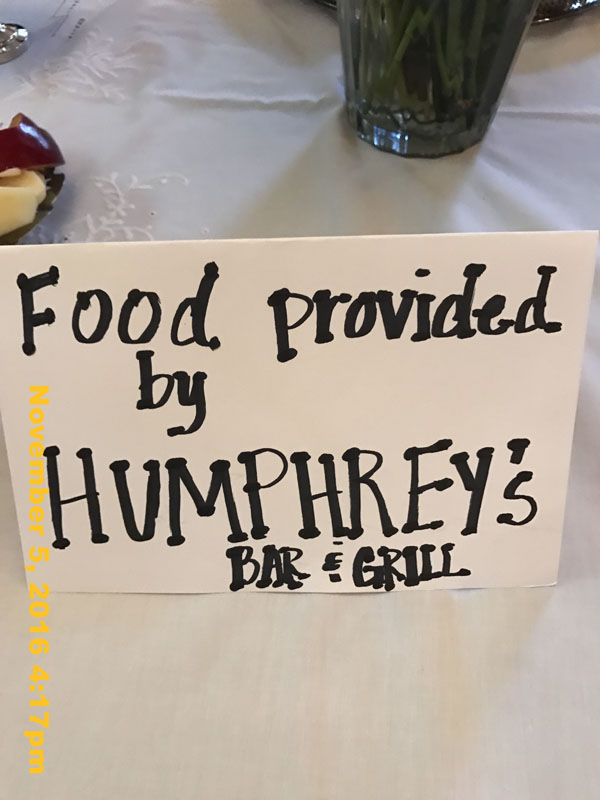 Food provided
by
HUMPHREY's
BAR & GRILL
November 5, 2016 4:17pm